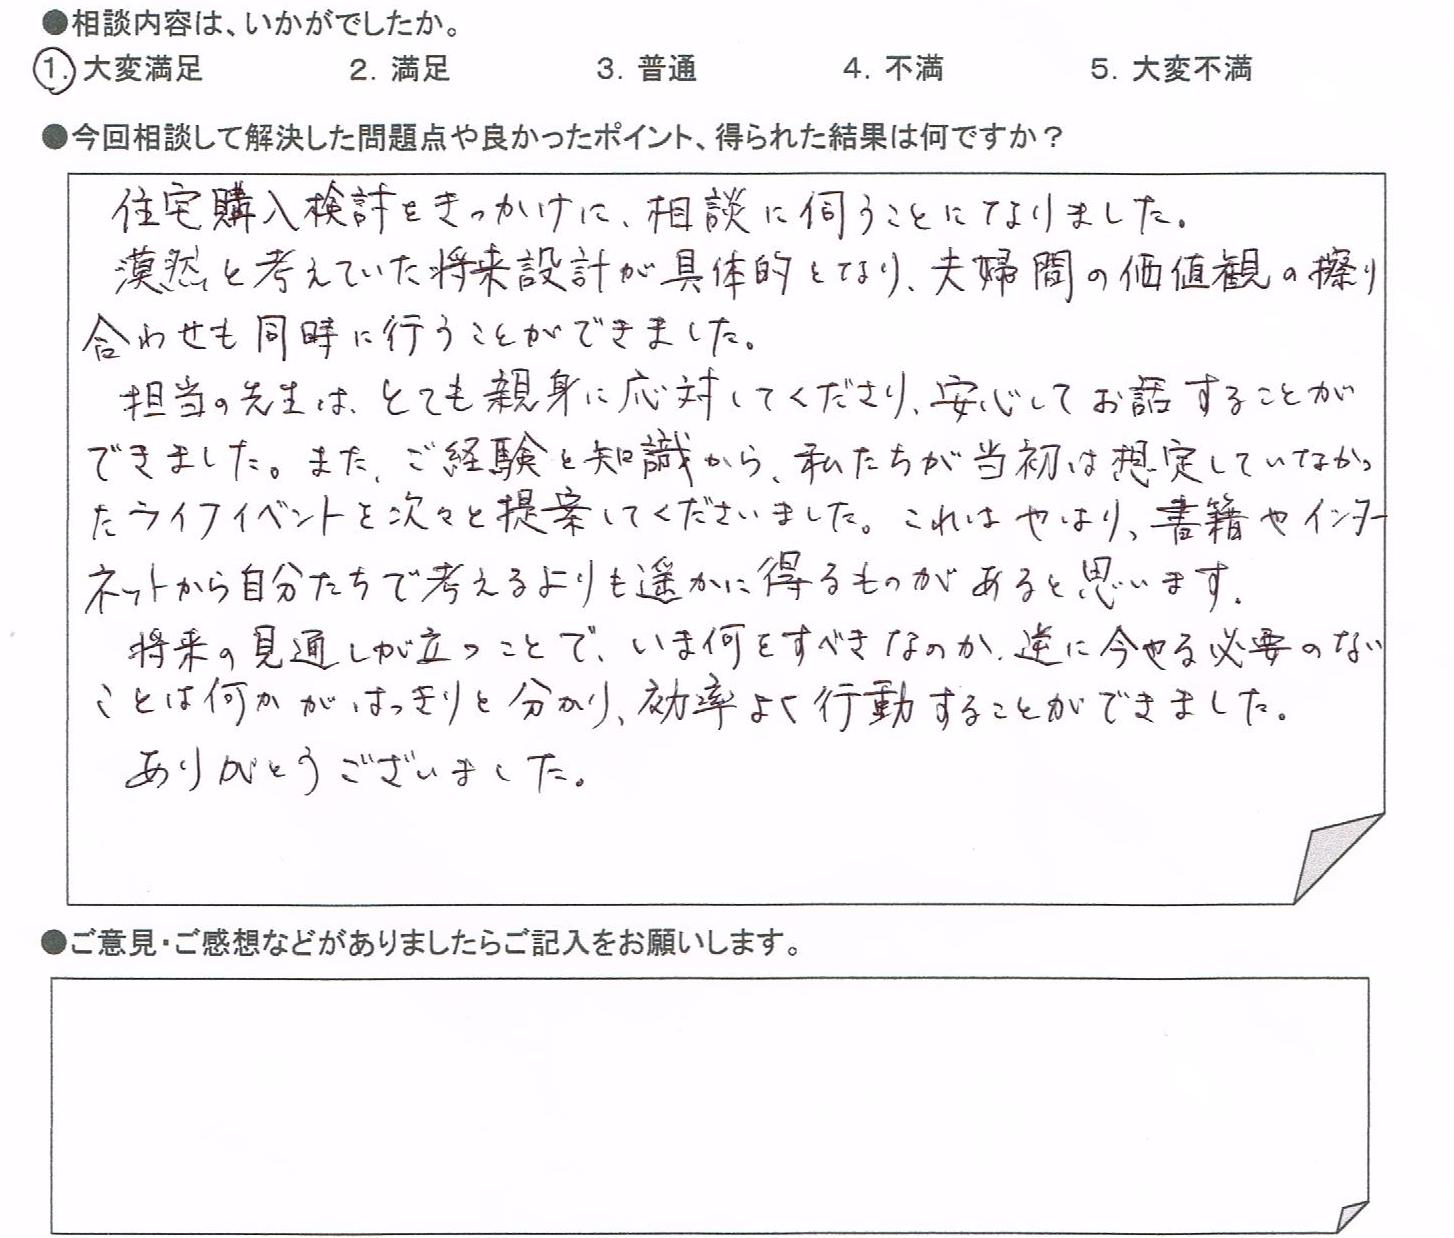 ●相談内容は、いかがでしたか。
1. 大変満足 2. 満足 3. 普通 4. 不満 5. 大変不満
●今回相談して解決した問題点や良かったポイント、得られた結果は何ですか？
住宅購入検討をきっかけに、相談に伺うことになりました。
漠然と考えていた将来設計が具体的となり、夫婦間の価値観の擦り
合わせも同時に行うことができました。
担当の先生は、とても親身に応対してくださり、安心してお話することが
できました。また、ご経験と知識から、私たちが当初は想定していなかっ
たライフイベントを次々と提案してくださいました。これはやはり、書籍やインター
ネットから自分たちで考えるよりも遥かに得るものがあると思います。
将来の見通しが立つことで、いま何をすべきなのか、逆に今やる必要のない
ことは何かがはっきりと分かり、効率よく行動することができました。
ありがとうございました。
●ご意見・ご感想などがありましたらご記入をお願いします。